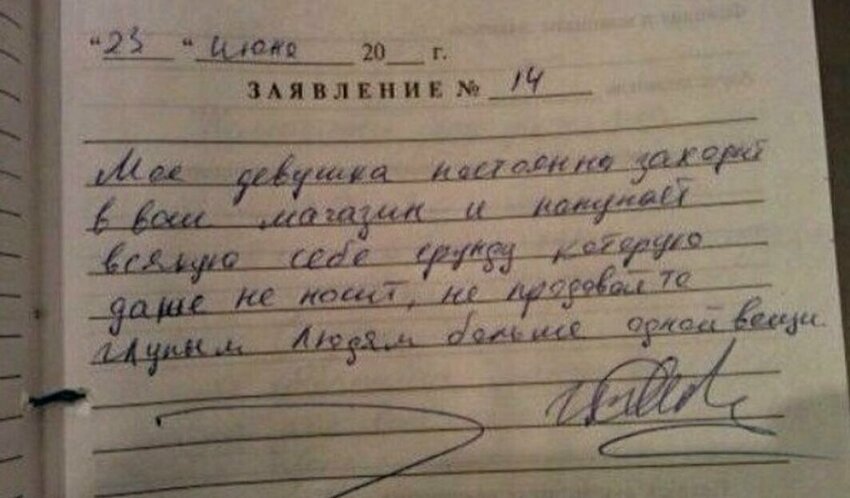 "23 " июня 20 г.
ЗАЯВЛЕНИЕ № 14
Мое девушка постоянно заходит
в ваш магазин и покупает
всякую себе ерунду которую
даже не носит, не продовайте
глупым людям больше одной вещи.